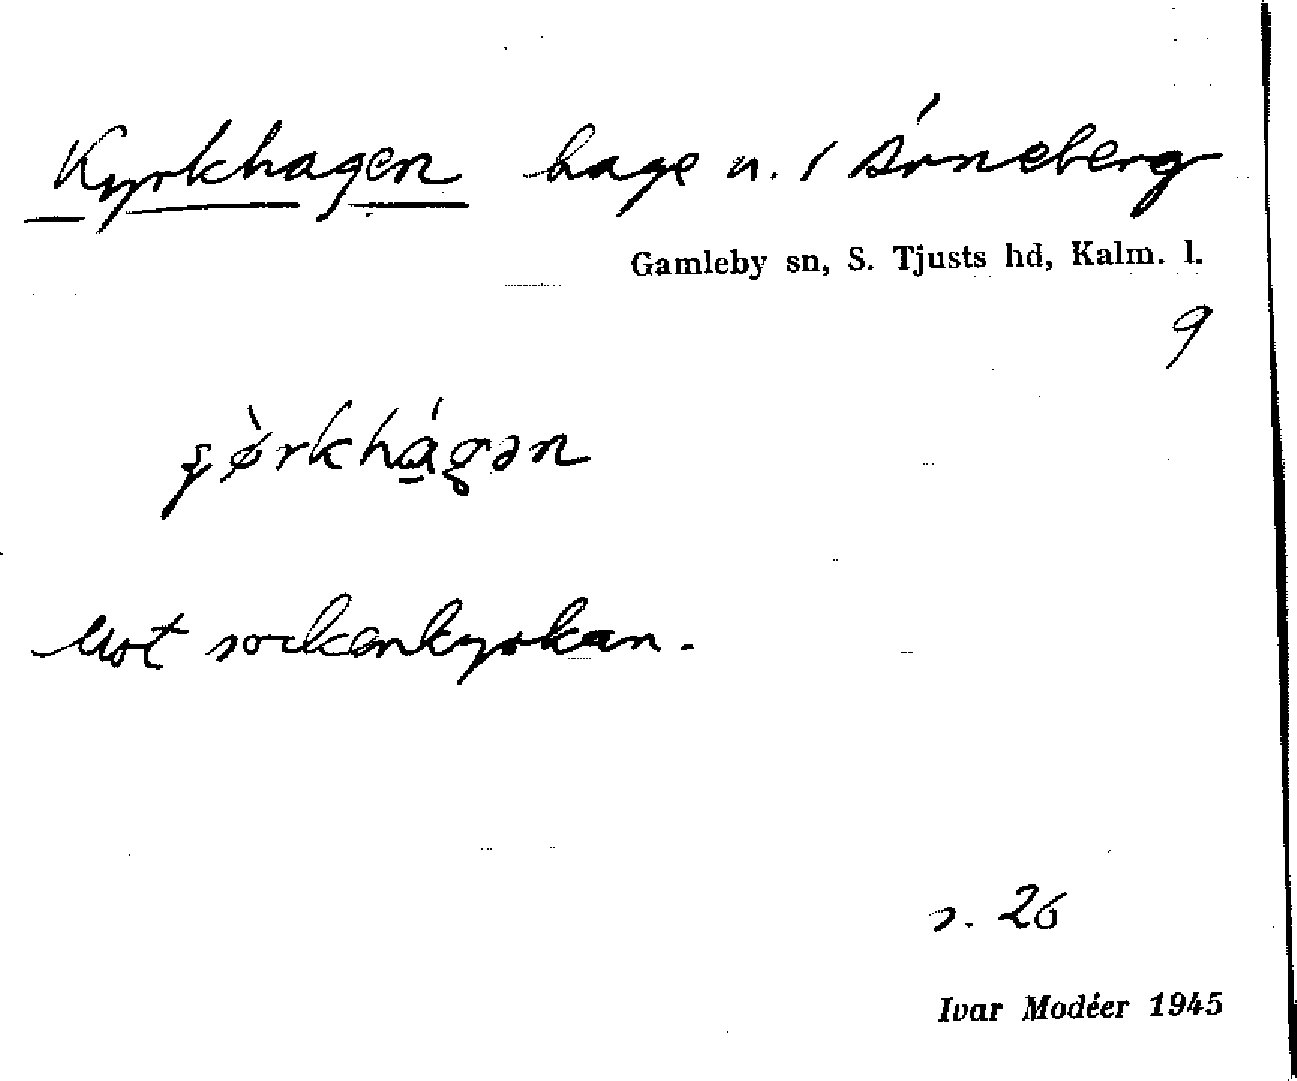 Kyrkhagen hage n. i Árneberg
Gamleby sn, S. Tjusts hd, Kalm. l.
9
Mot sockenkyrkan.
s. 26
Ivar Modéer 1945